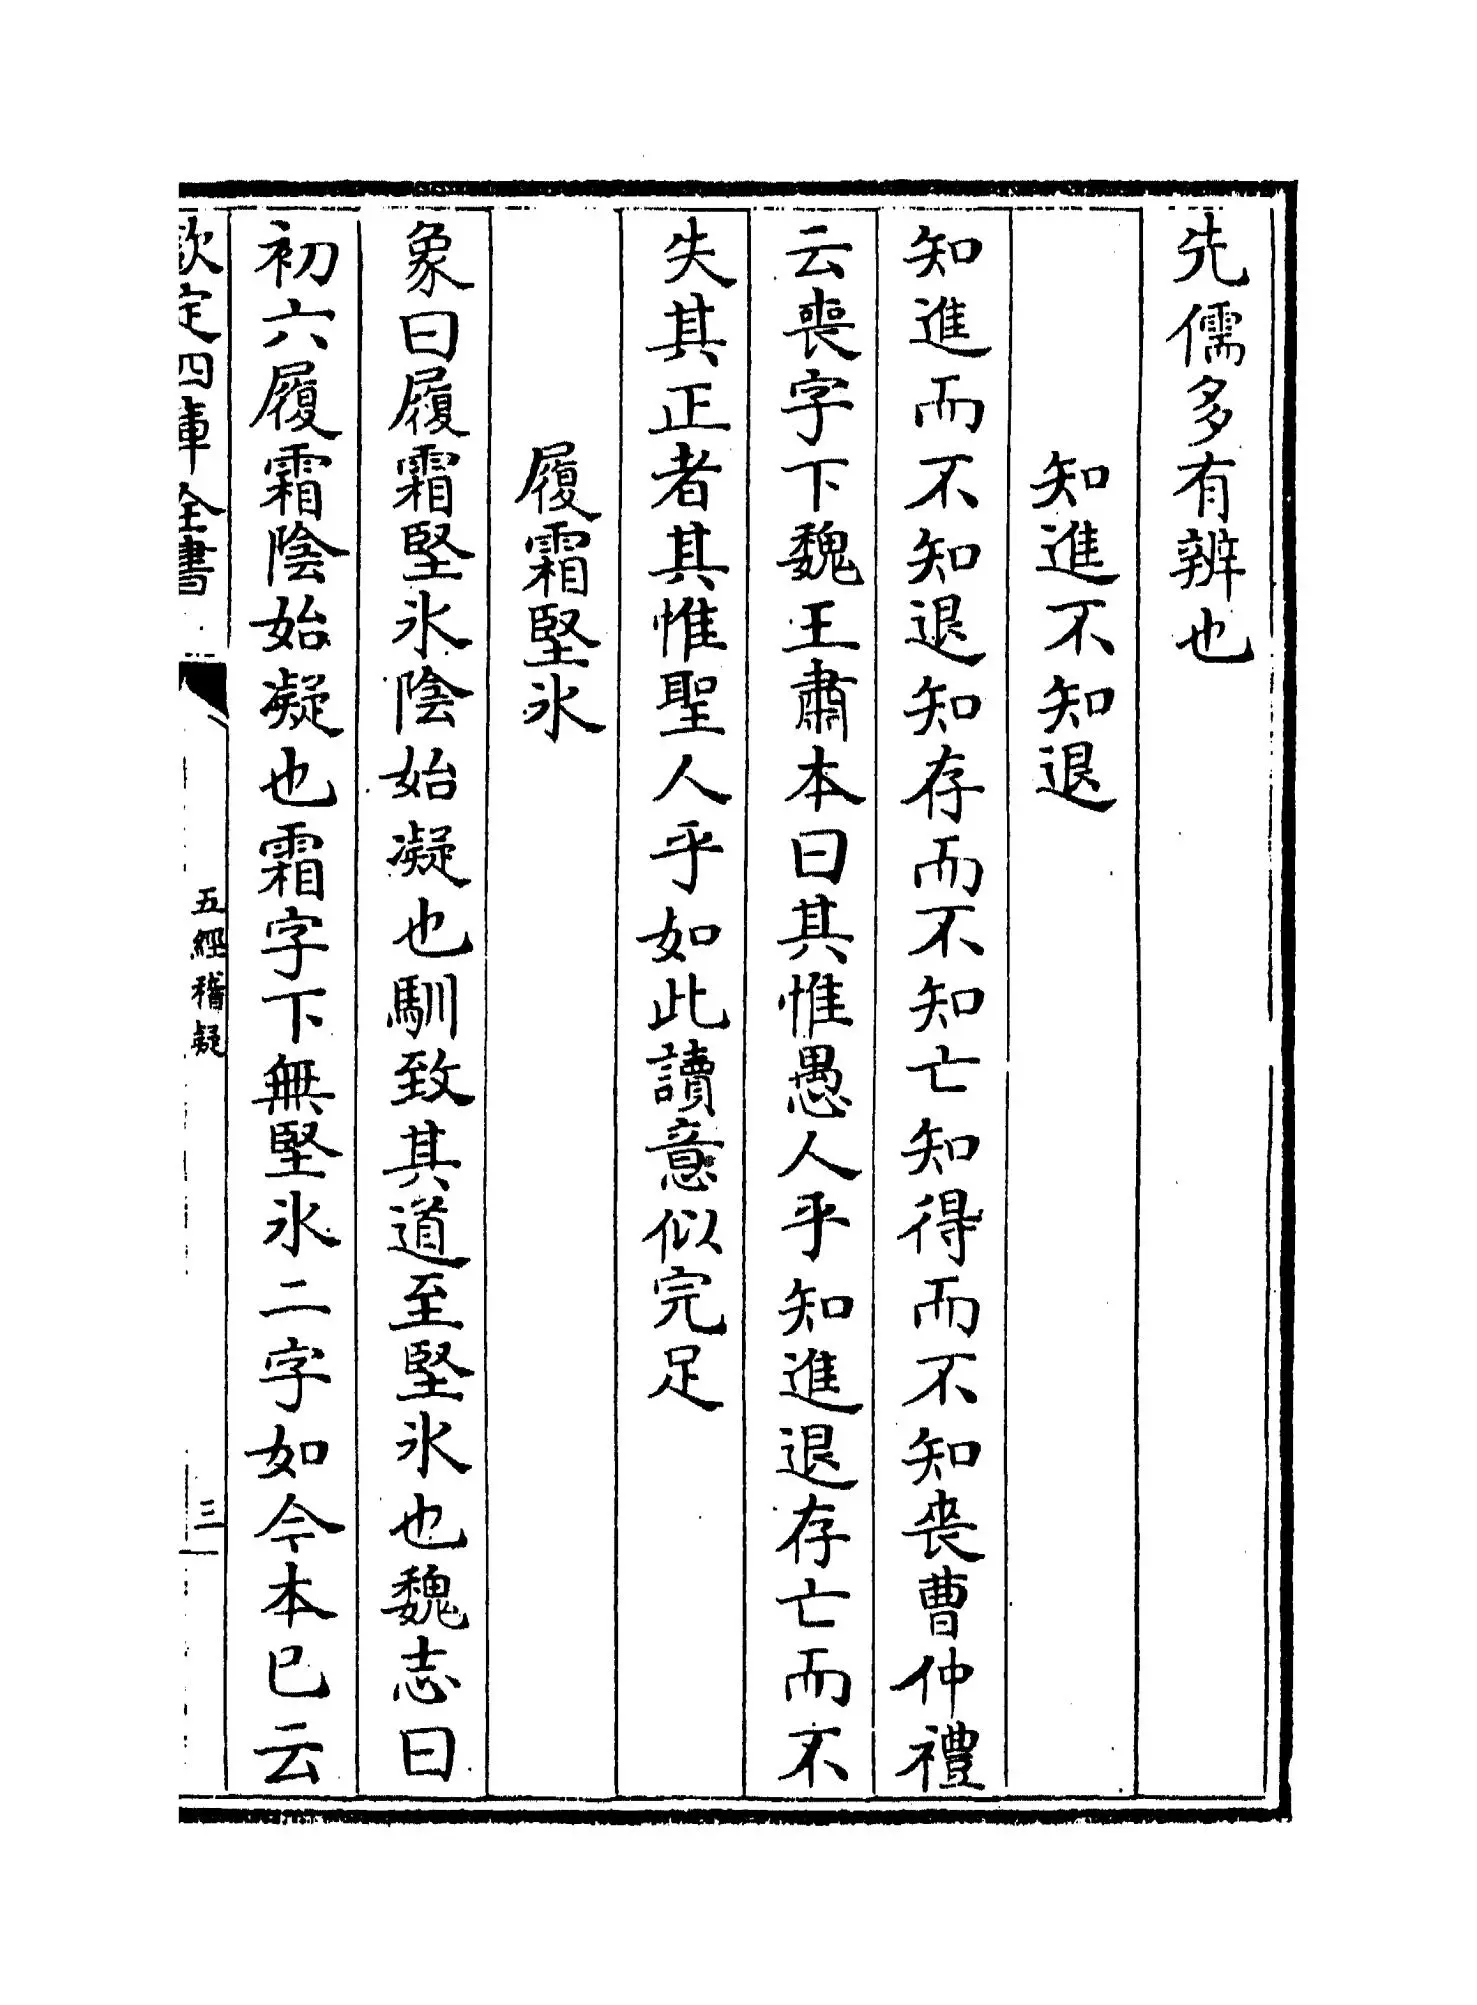 先儒多有辨也
知進不知退
知進而不知退知存而不知亡知得而不知喪曹仲禮
云喪字下魏王肅本曰其惟愚人乎知進退存亡而不
失其正者其惟聖人乎如此讀意似完足
履霜堅氷
象曰履霜堅氷陰始凝也馴致其道至堅氷也魏志曰
初六履霜陰始凝也霜字下無堅氷二字如今本已云
欽定四庫全書
五經稽疑
三